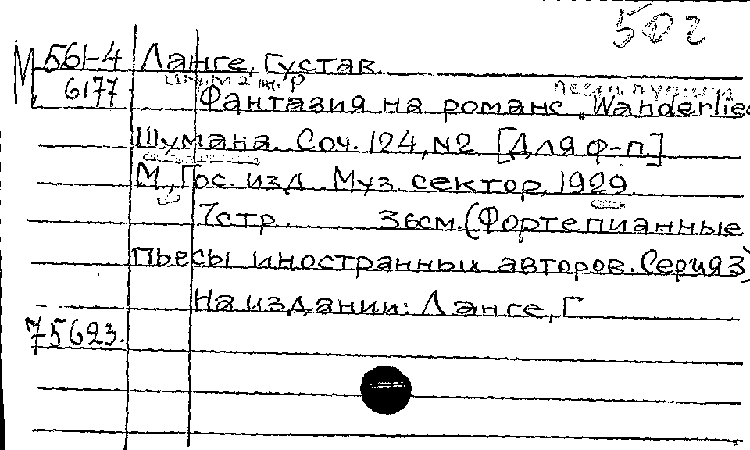 50 г
М 561-4 Ланге, Густав
6177
Фантазия на романс „Wanderlied"
Шумана. Соч. 124, №2 [Для ф-п.]
М., Гос. изд. Муз. сектор, 1929.
7 стр. 36 см. (Фортепианные
пьесы иностранных авторов. Серия 3)
На издании: Ланге, Г
75623.